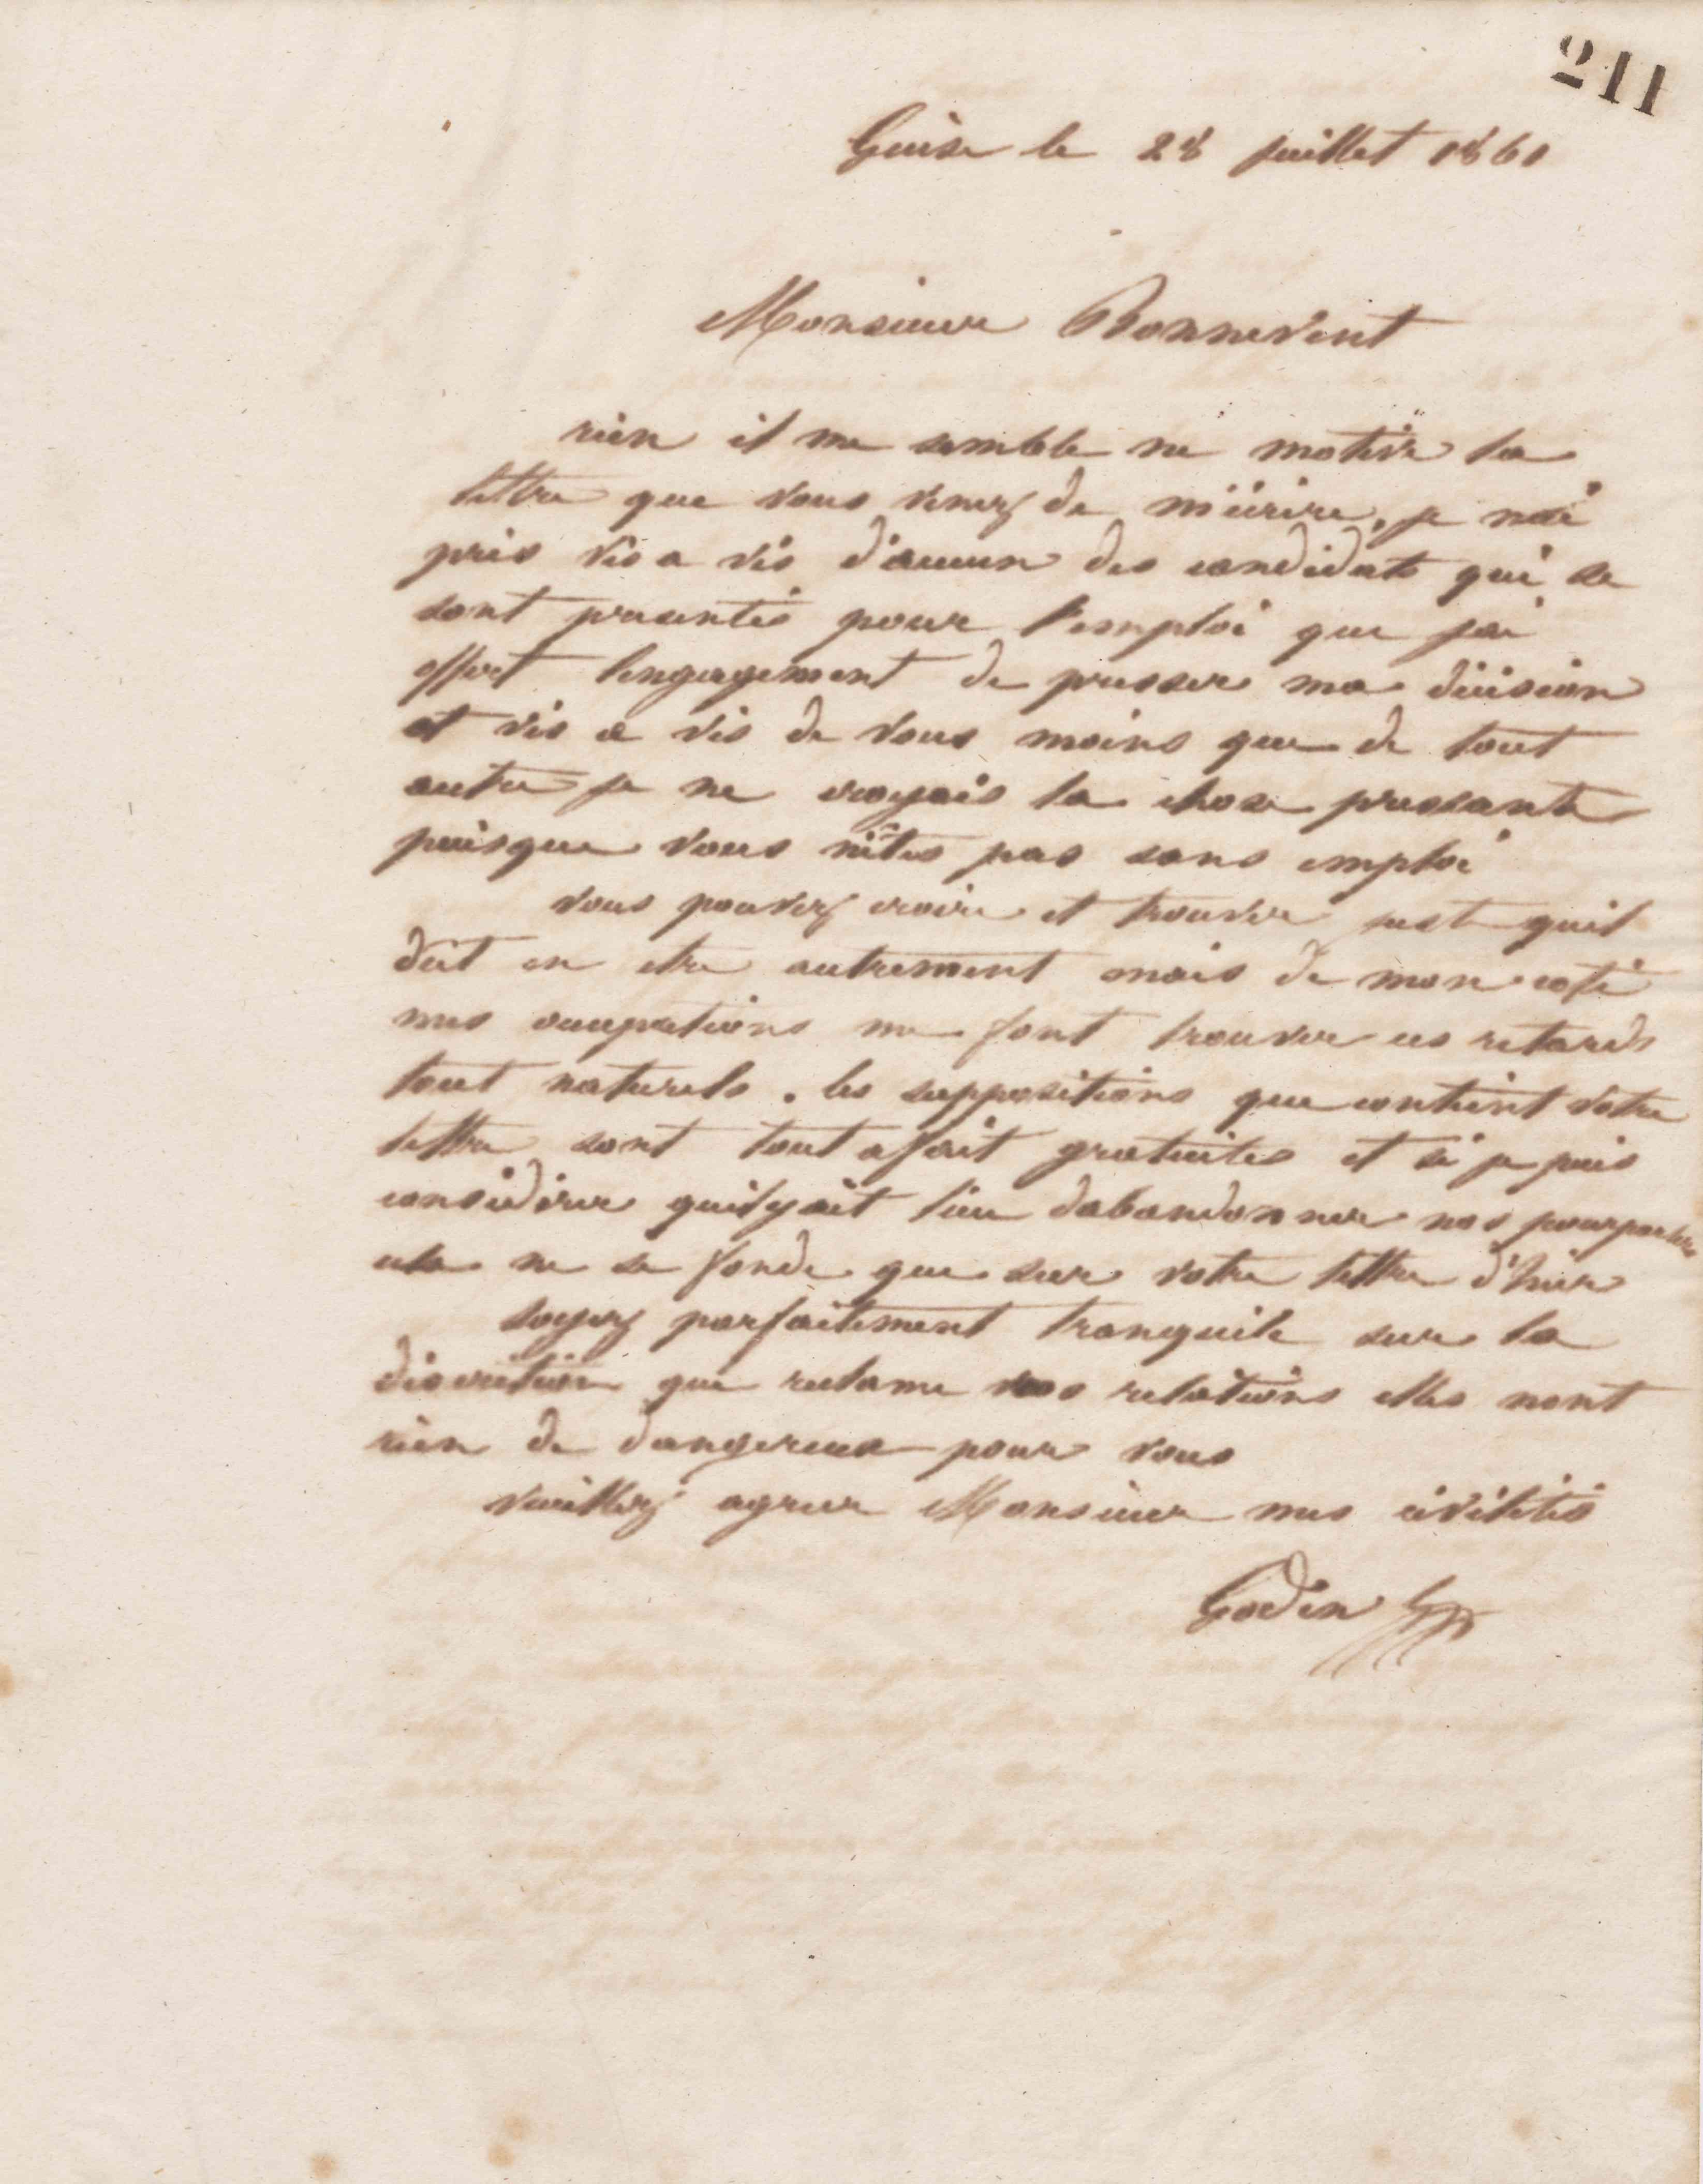 211
Guise le 28 juillet 1860
Monsieur Bonnevent
rien il me semble ne motive la
lettre que vous venez de m'écrire, je n'ai
pris vis a vis d'aucun des candidats qui se
sont presentés pour l'emploi que jai
offert lengagement de presser ma décision
et vis a vis de vous moins que de tout
autre je ne croyais la chose pressante
puisque vous nêtes pas sans emploi
vous pouvez croire et trouver juste quil
dût en etre autrement mais de mon coté
mes occupations me font trouver ces retards
tout naturels. les suppositions que contient votre
lettre sont tout afait gratuites et si je puis
considérer quilyait lieu dabandonner nos pourparlers
cela ne se fonde que sur votre lettre d'hier
soyez parfaitement tranquile sur la
discrétion que reclame nos relations elles nont
rien de dangereux pour vous
veuillez agreer Monsieur mes civilités
Godin